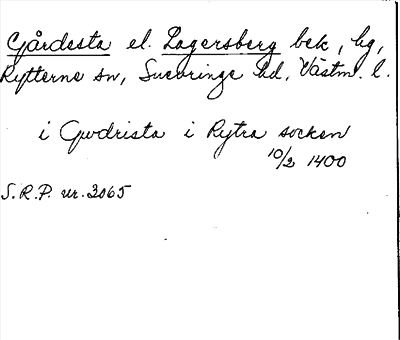 Gårdesta el. Lagersberg bek, hg,
Rytterne sn, Snevringe hd, Västm. l.
i Gwdrista i Rytra socken
10/2 1400
S.R.P. nr. 3065